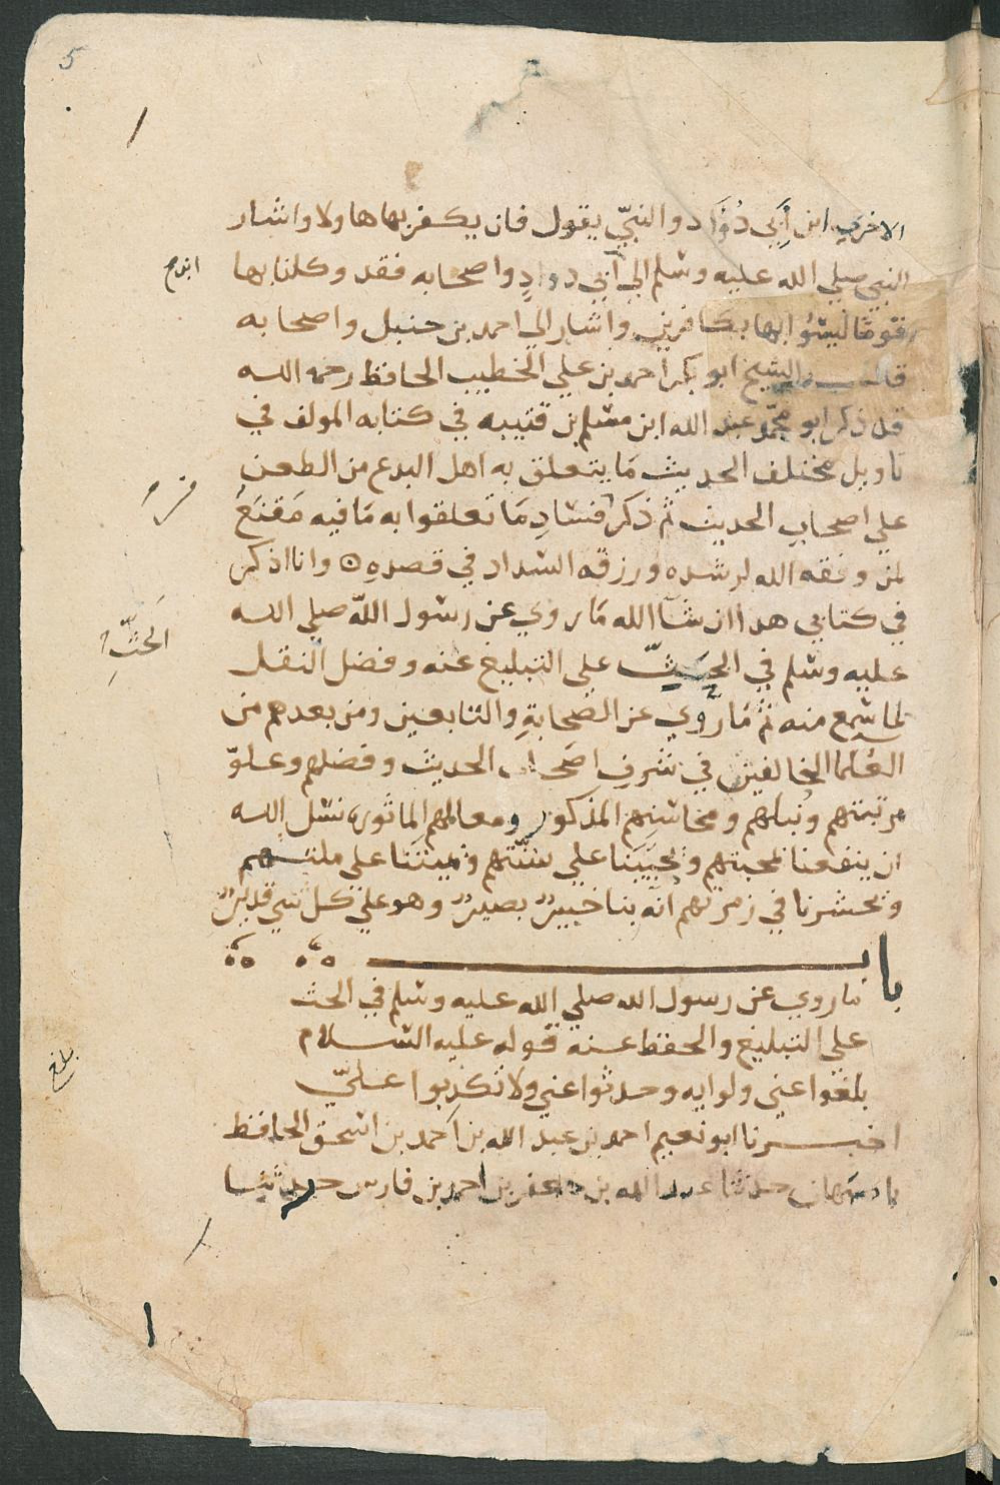 5
الاخري ابن أبي دُوَاد والنبيّ يقول فان يكفر بها هاولا واشار
النبي صلي الله عليه وسلم الي أبي دوادٍ واصحابه فقد وكلنا بها
قومًا ليسُوا بها بكافرين واشار الي احمد بن حنبل واصحابه
قال الشيخ ابو بكر احمد بن علي الخطيب الحافظ رحمه الله
قد ذكر ابو محمّد عبد الله ابن مسلم بن قتيبه في كتابه المولف في
تاويل مختلف الحديث مَا يتعلق به اهل البدع من الطعن
علي اصحابِ الحديث ثم ذكر فسَادِ مَا تعلقوا به مَا فيه مَقنَعُ
لمن وفقه الله لرشده ورزقه السَداد في قصدهِ ⊙ وانا اذكر
في كتابي هدا ان شآ الله مَا روي عن رسول اللّه صلي الله
عليه وسلم في الحَثّ علي التبليغ عنه وفضل النقل
لما سُمِع منه ثم مَا رُوي عن الصَحابةِ والتابعين ومن بعدهم من
العُلما الخالفين في شرفِ اصَحاب الحديث وفضلهم وعلوّ
مرتبتهم ونُبلهم ومحَاسنِهم المذكوره ومعالمهم الماثوره نسل الله
ان ينفعنا بمحبتهم ويُحيِيَنا علي سُنّتهم ويميتَنا على ملتهم
ويحشرنا في زمرتهم انّه بنا خبيرٌ بصيرٌ وهو علي كل شي قديرٌ
باب
مَا روي عن رسول الله صلي الله عليه وسَلم في الحث
علي التبليغ والحفظ عنه قوله عليه السَلام
بلغوا عني ولو ايه وحدثوا عني ولا تكذبوا علَيّ
اخبرنا ابو نعيم احمد بن عبد الله بن احمد بن اسحق الحافظ
باصبَهان حدثنا عبد الله بن جعفر بن احمد بن فارس حدثنا
الحَثِّ
بلغ